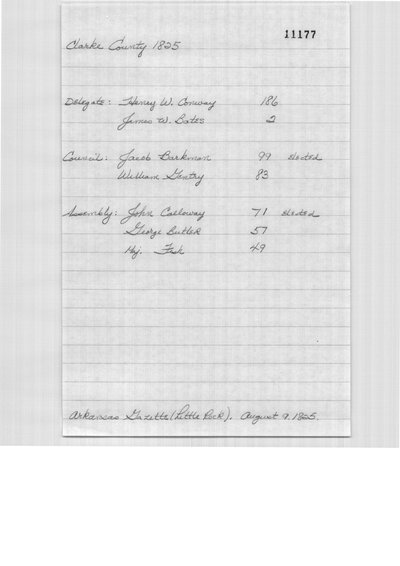 11177
Clarke County 1825
Delegate: Henry W. Conway 186
James W. Bates 2
Council: Jacob Barkman 99 elected
William Gentry 83
Assembly: John Calloway 71 elected
George Butler 57
Maj. Fish 49
Arkansas Gazette (Little Rock). August 9, 1825.